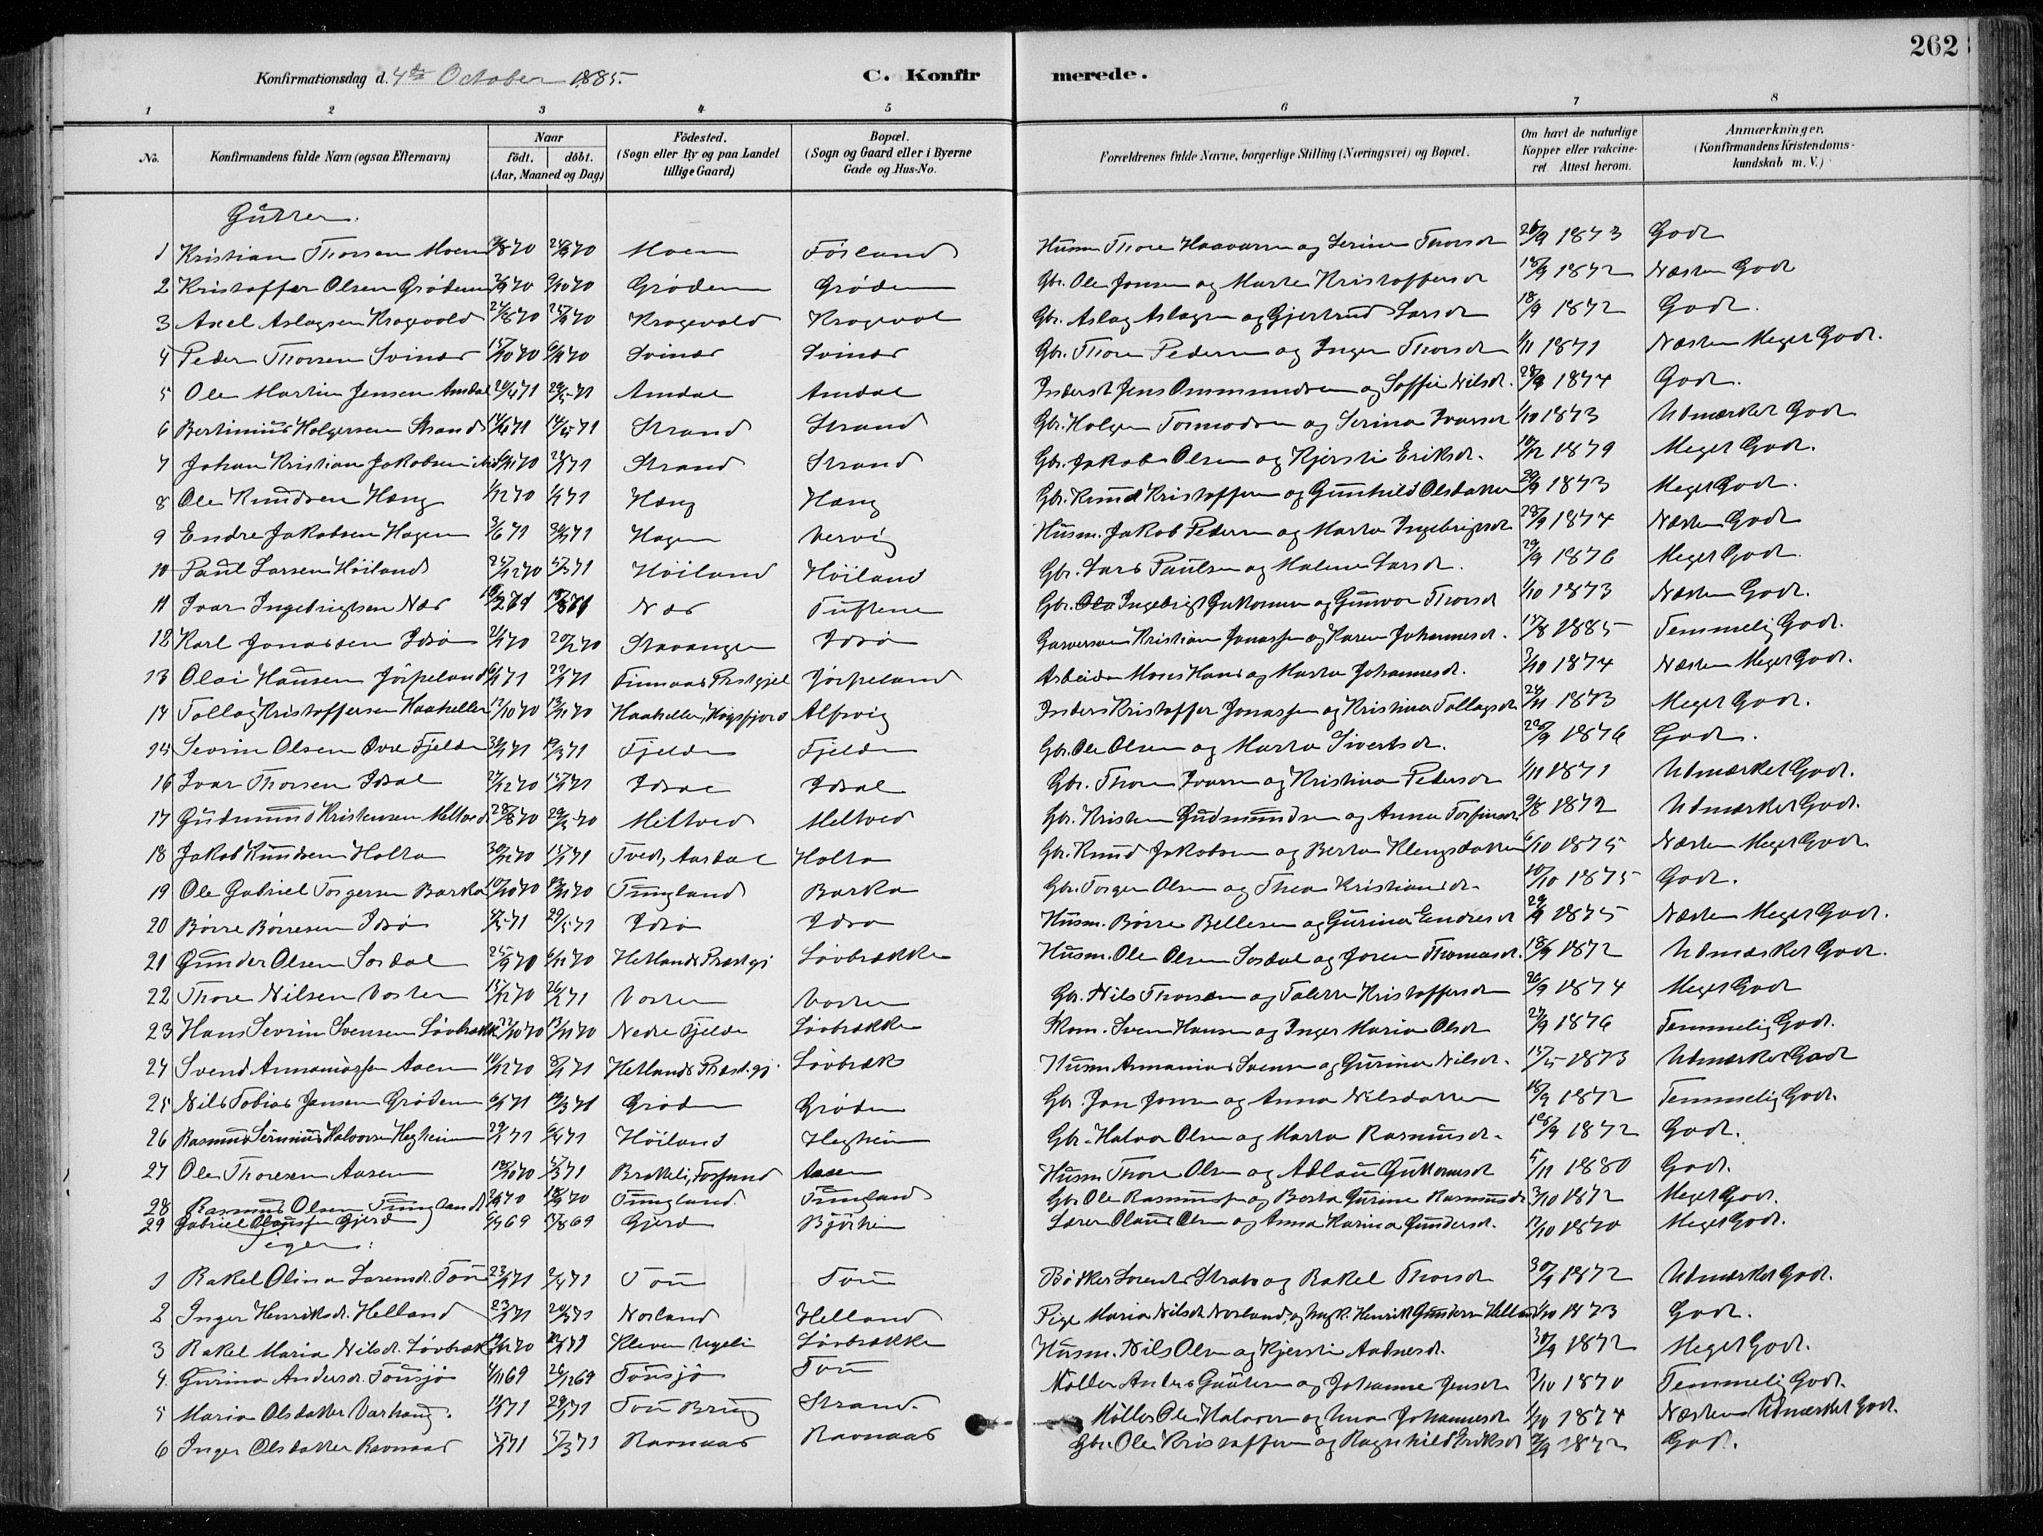 262
Konfirmationsdag d. 4de October 1885.
C. Konfirmerede.
1 2 3 4 5 6 7 8
No.
Konfirmandens fulde Navn (ogsaa Efternavn)
Naar
født. døbt.
(Aar, Maaned og Dag)
Fødested.
(Sogn eller By og paa Landet
tillige Gaard)
Bopæl.
(Sogn og Gaard eller i Byerne
Gade og Hus-No.
Forældrenes fulde Navne, borgerlige Stilling (Næringsvei) og Bopæl.
Om havt de naturlige
Kopper eller vakcine-
ret Attest herom.
Anmærkninger.
(Konfirmandens Kristendoms-
kundskab m. V.)
Gutter.
1 Kristian Thorsen Moen Moen Fosland Husm. Thore Haavarsen og Serine Thorsdt 26/9 1873 Godt
2 Kristoffer Olsen Grødem 9/10 70 Grødem Grødem Gbr. Ole Jonsen og Marte Kristoffersdt 18/9 1872 Næsten Godt
3 Axel Aslagsen Krogevold Krogevold Krogevol Gbr. Aslag Aslagsen og Gjertrud Larsdt 18/9 1872 Godt.
4 Peder Thorsen Svines 15/10 70 Svines Svines Gbr. Thore Pedersen og Inger Thorsdt 1/11 1871 Næsten Meget Godt.
5 Ole Martin Jensen Amdal 20/4 71 29/5 71 Amdal Amdal Inderst Jens Ommundsen og Soffie Nilsdt. 1874 Godt.
6 Bertinius Holgersen Strand Strand Strand Gbr. Holger Tormodsen og Serina Ivarsdt 1/10 1873 Udmærket Godt
7 Johan Kristian Jakobsen Strand Strand Gbr. Jakob Olsen og Kjersti Eriksdt. 10/12 1879 Meget Godt.
8 Ole Knudsen Haug 1/12 70 1/1 71 Haug Haug Gbr. Knud Kristoffersen og Gunhild Olsdatter 29/9 1873 Meget Godt.
9 Endre Jakobsen Hagen 3/6 71 Hagen Vervig Husm. Jakob Pedersen og Marta Ingebrigtsdt 23/9 1874 Næsten Godt
10 Paul Larsen Høiland 25/12 70 5/3 71 Høiland Høiland Gbr. Lars Paulsen og Malene Larsdt. 29/9 1876 Meget Godt.
11 Ivar Ingebrigtsen Nær Nær Tuftene Gbr. Ingebrigt Guttormsen og Gunvor Thorsdt 1/10 1873 Næsten Godt.
12 Karl Jonassen Idsø Stavanger Idsø Garversven Kristian Jonassen og Karen Johannesdt. 17/8 1885 Temmelig Godt.
13 Olai Hansen Jørpeland Finnaas Præstgjel Jørpeland Arbeider Mons Hans og Marta Johannesdt. 3/10 1874 Næsten Meget Godt.
14 Tollag Kristoffersen Haaheller 12/10 70 Haaheller, Høgsfjord Alsvig Inderst Kristoffer Jonassen og Kristina Tollagsdt 24/11 1873 Meget Godt.
15 Sevrin Olsen Øvre Fjelde Fjelde Fjelde Gbr. Ole Olsen og Marta Sivertsdt. 22/9 1876 Godt.
16 Ivar Thorsen Idsal 27/12 70 15/1 71 Idsal Idsal Gbr. Thore Ivarsen og Kristina Pedersdt 1/11 1871 Udmærket Godt.
17 Gudmund Kristensen Meltved 28/8 70 Meltved Meltved Gbr. Kristen Gudmundsen og Anna Torfinsdt. 9/8 1872 Udmærket Godt.
18 Jakob Knudsen Holta 30/12 70 15/1 71 Tveit, Aardal Holta Gbr. Knud Jakobsen og Berta Klengsdatter 6/10 1875 Næsten Meget Godt.
19 Ole Gabriel Torgersen Barka Tungland Barka Gbr. Torger Olsen og Thea Kristiansdt. 10/10 1875 Godt.
20 Børre Børresen Idsø 29/5 71 Idsø Idsø Husm. Børre Bellesen og Gurina Endresdt 29/9 1875 Næsten Meget Godt.
21 Gunder Olsen Sordal 25/9 70 6/11 70 Hetlands Præstgj Løvbrække Husm. Ole Olsen Sordal og Joren Thomasdt. 18/9 1872 Udmærket Godt.
22 Thore Nilsen Vosten 15/12 70 26/1 71 Vosten Vosten Gbr. Nils Thorsen og Talette Kristoffersdt 26/9 1874 Meget Godt
23 Hans Sevrin Svensen Løvbrækk 22/10 70 Nedre Fjelde Løvbrække Kom. Sven Hansen og Inger Maria Olsdt 27/9 1876 Temmelig Godt.
24 Svend Annaniassen Aaen 10/12 70 8/1 71 Hetlands Præstgj. Løvbræk Husm Annanias Svensen og Gurina Nilsdt. 15/5 1873 Udmærket Godt
25 Nils Tobias Jansen Grødem 6/1 71 19/3 71 Grødem Grødem Gbr. Jan Jonsen og Anna Nilsdatter 18/9 1872 Temmelig Godt.
26 Rasmus Severinius Halvorsen Hegheim 29/1 71 Høiland Hegheim Gbr. Halvor Olsen og Marta Rasmusdt. 18/9 1872 Godt.
27 Ole Thoresen Aasen 5/3 71 Brekkeli, Forsand Aasen Husm Thore Olsen og Adlau Guttormsdt 5/11 1880 Godt.
28 Rasmus Olsen Tungland Tungland. Tungland Gbr Ole Rasmussen og Berta Gurine Rasmusdt 3/10 1872 Meget Godt.
29 Gabriel Olaussen Gjerde Gjerde Bjørheim Lærer Olaus Olsen og Anna Karina Gundersdt. 12/10 1870 Meget Godt.
Piger:
1 Rakel Olina Sørensdt. Tou 23/1 71 2/4 71 Tou Tou Bødker Sørent Strabo og Rakel Thorsdt 30/9 1872 Udmærket Godt.
2 Inger Henriksdt. Helland 23/1 71 Norland Helland Pige Maria Nilsdt Norland, og ungk. Henrik Gundersen Helland 1/10 1873 Godt.
3 Rakel Maria Nilsdt. Løvbræk Kleven Ugeli Løvbrække Husm. Nils Olsen og Kjersti Aadnesdt. 30/9 1872 Meget Godt.
4 Gurina Andersdt. Tousjø 4/11 69 26/12 69 Tousjø Tou Møller Anders Gautesen og Johanne Jensdt 3/10 1870 Temmelig Godt.
5 Maria Olsdatter Varhaug. 29/1 71 Tou Brug Strand. Møller Ole Halvorsen og Anna Johannesdt 1/10 1874 Næsten Udmærket Godt.
6 Inger Olsdatter Ravnaas 5/3 71 Ravnaas Ravnaas Gbr. Ole Kristoffersen og Ragnhild Eriksdt 1872 Godt.